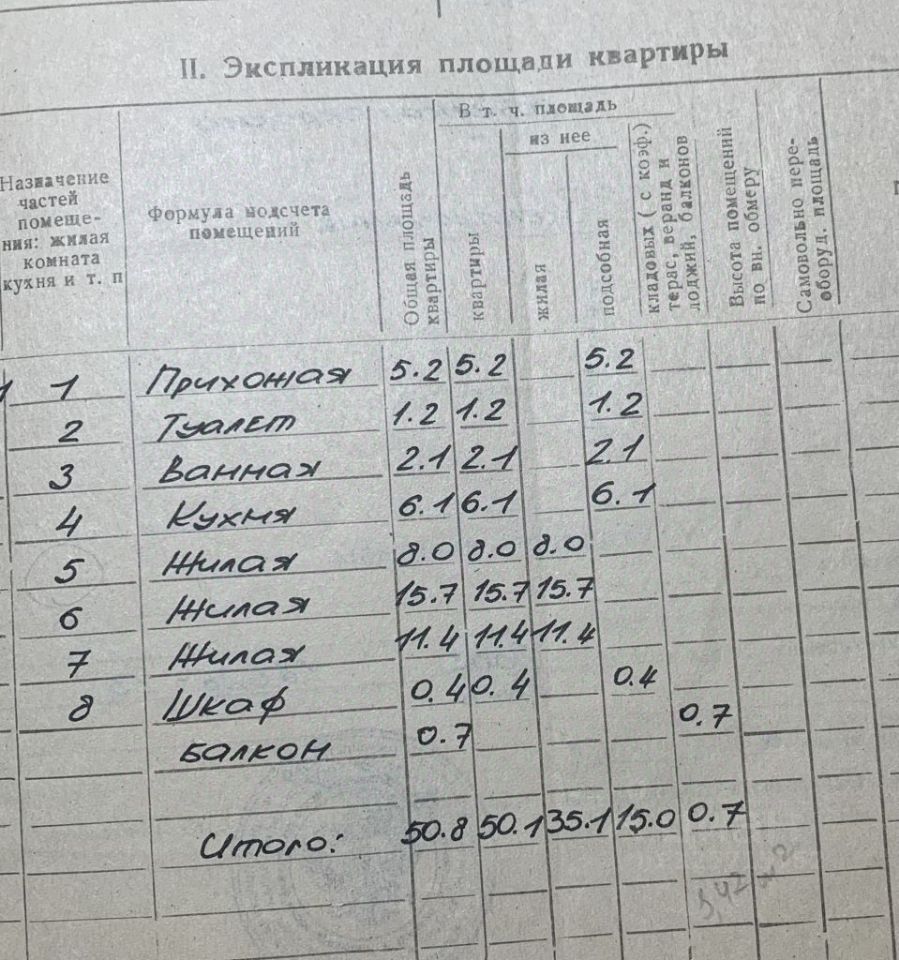 II. Экспликация площади квартиры
Назначение частей помеще- ния: жилая комната кухня и т. п
Формула подсчета помещений
Общая площадь квартиры
В т. ч. площадь
квартиры
из нее
жилая
подсобная
кладовых ( с коэф.) терас, веранд и лоджий, балконов
Высота помещений по вн. обмеру
Самовольно пере- оборуд. площадь
1 Прихожая 5.2 5.2 5.2
2 Туалет 1.2 1.2 1.2
3 Ванная 2.1 2.1 2.1
4 Кухня 6.1 6.1 6.1
5 Жилая 8.0 8.0 8.0
6 Жилая 15.7 15.7 15.7
7 Жилая 11.4 11.4 11.4
8 Шкаф 0.4 0.4 0.4
Балкон 0.7 0.7
Итого: 50.8 50.1 35.1 15.0 0.7